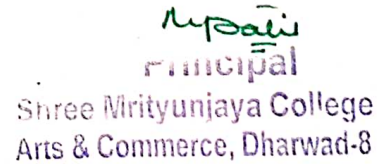 Principal
Shree Mrityunjaya College
Arts & Commerce, Dharwad-8